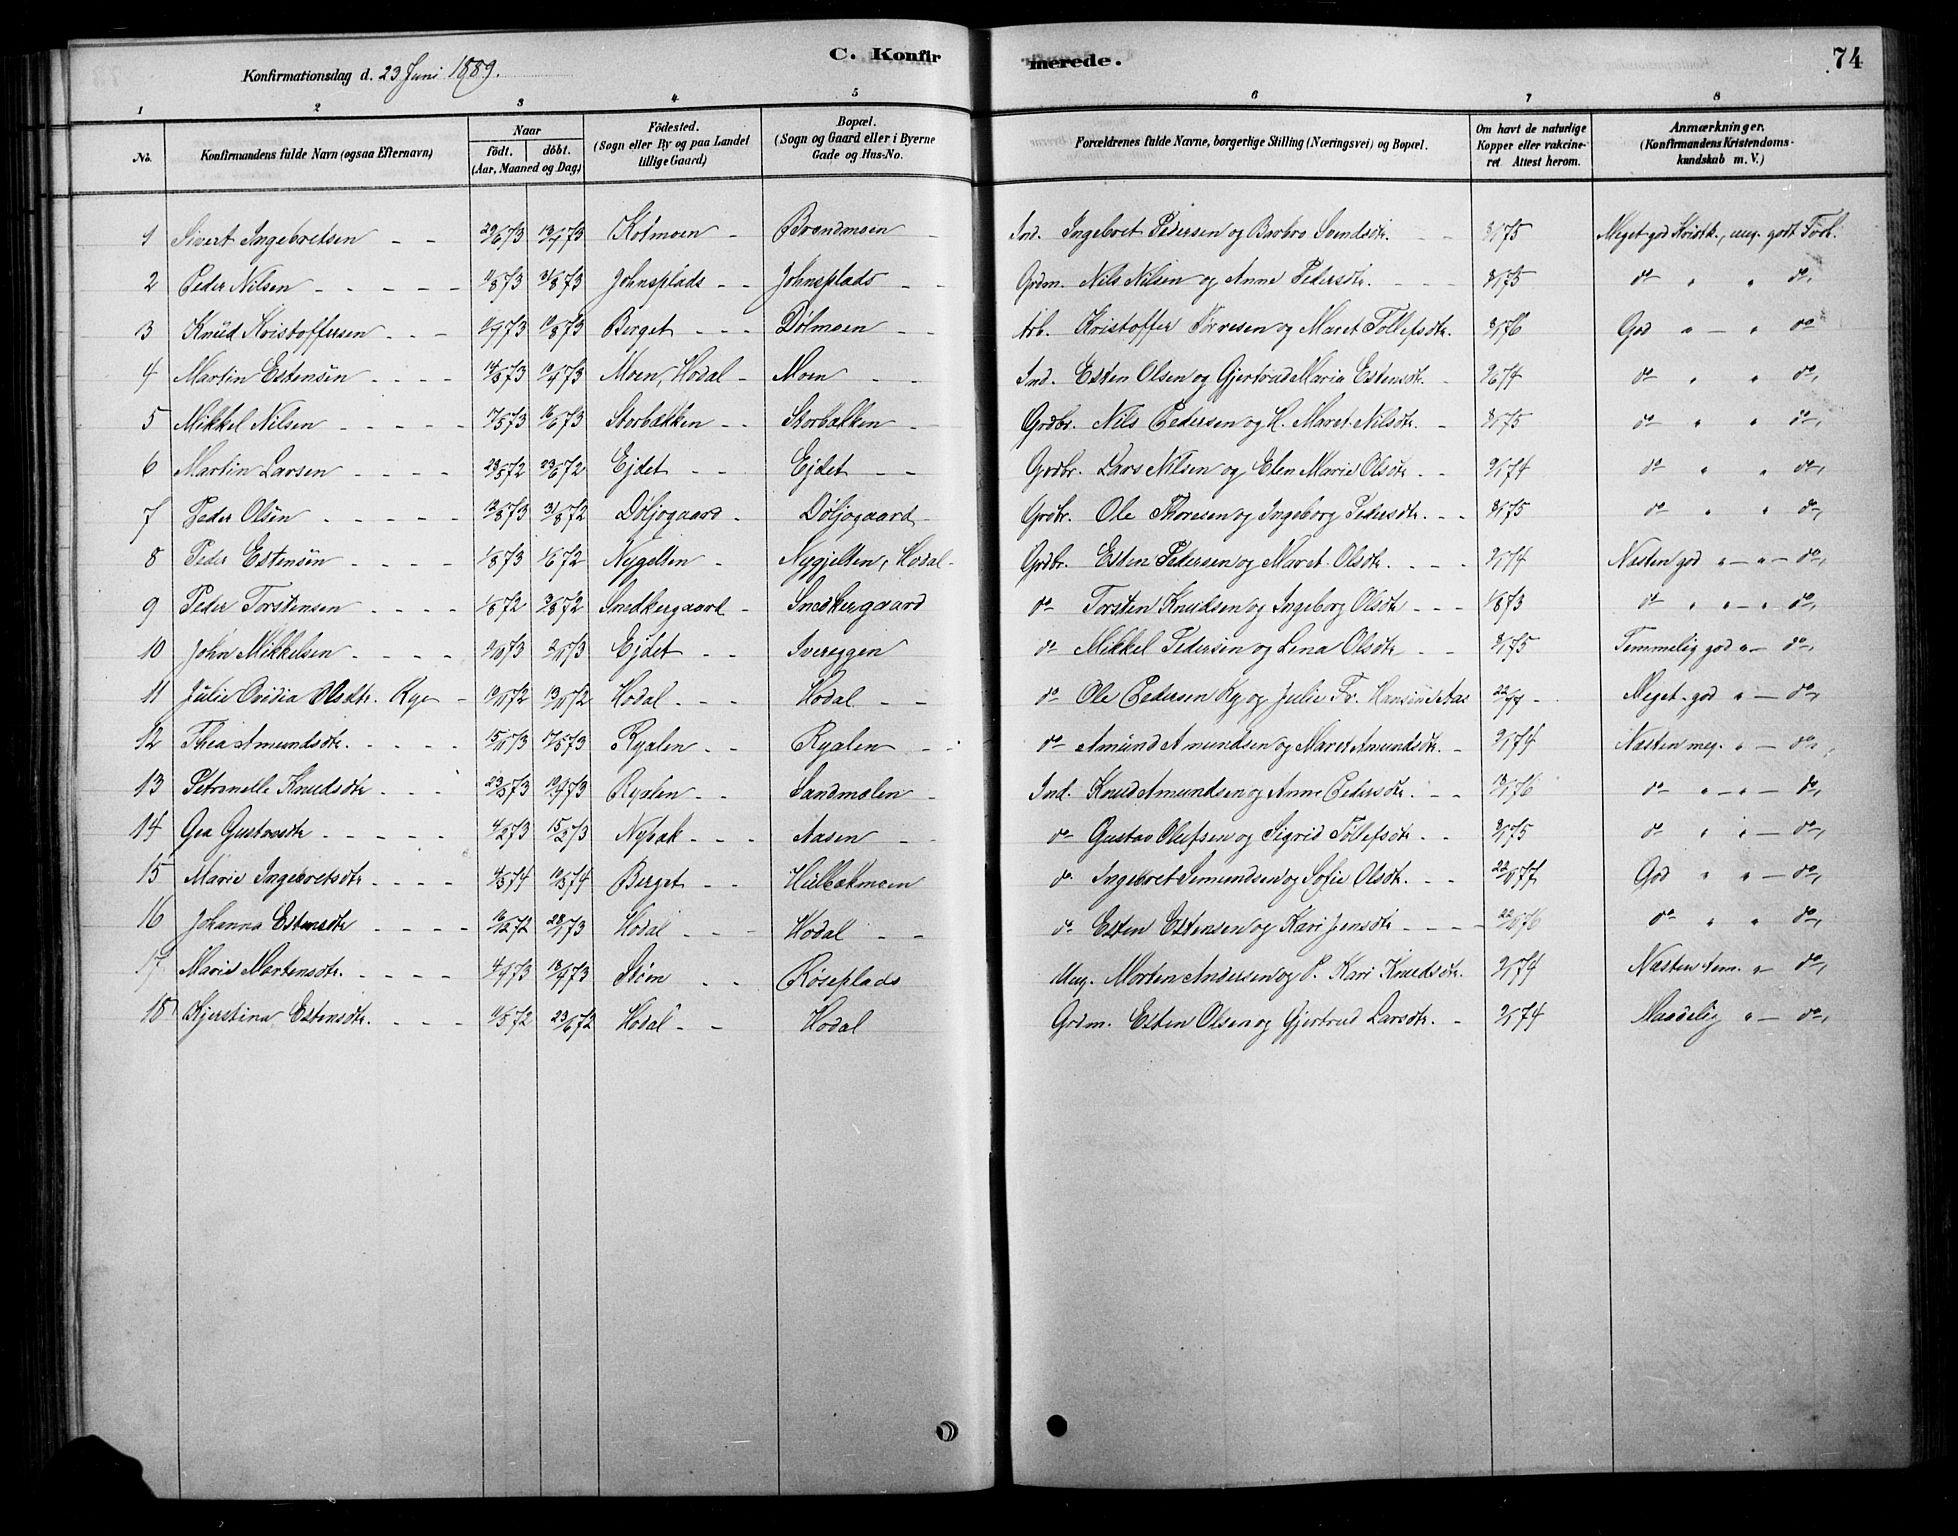 C. Konfirmerede. 74
Konfirmationsdag d. 23 Juni 1889.
1 2 3 4 5 6 7 8
No. Konfirmandens fulde Navn (ogsaa Efternavn) Naar født. døbt. (Aar, Maaned og Dag) Födested. (Sogn eller By og paa Landet tillige Gaard) Bopæl. (Sogn og Gaard eller i Byerne Gade og Hus-No. Forældrenes fulde Navne, borgerlige Stilling (Næringsvei) og Bopæl. Om havt de naturlige Kopper eller vakcineret Attest herom. Anmærkninger. (Konfirmandens Kristendomskundskab m. V.)
1 Sivert Ingebretsen 29/6 73 13/7 73 Brændmoen Ind. Ingebret Pedersen og Barbro Svendsdtr. 8/1 75 Meget god Kristk., meg. godt Forh.
2 Peder Nilsen 31/8 73 Johnsplads Johnsplads Grdm. Nils Nilsen og Anne Pedersdtr. 8/1 75 do " " do
3 Knud Kristoffersen Berget Dølmoen Arb. Kristoffer og Maret Tollefsdtr. 8/1 76 God " — " do
4 Martin Estensen 14/3 73 Moen, Hodal Moen Ind. Esten Olsen og Gjertrud Maria Estensdtr. 9/6 74 do " " do
5 Mikkel Nilsen 17/5 73 16/6 73 Storbækken Storbækken Grdbr. Nils Pedersen og H. Maret Nilsdtr. 8/1 75 do " " do
6 Martin Larsen 23/6 72 Ejdet Ejdet Grdbr. Lars Nilsen og Elen Marie Olsdtr. 9/1 74 do " " do
7 Peder Olsen 31/8 72 Døljogaard Døljogaard Grdbr. Ole Thoresen og Ingeborg Pedersdtr. 8/1 75 do " " do
8 Peder Estensen Nygelten Nygjelten, Hodal Grdbr. Esten Pedersen og Maret Olsdtr. 9/1 74 Næsten god " — " — do
9 Peder Torstensen Snedkergaard Snedkergaard do Torsten Knudsen og Ingeborg Olsdtr 1/8 73 do " " — " do
10 John Mikkelsen Ejdet Ivereggen do Mikkel Pedersen og Lena Olsdtr 8/1 75 Temmelig god " — do
11 Julie Ovidia Olsdtr. Rye Hodal Hodal do Ole Pedersen Ry og Julie Fr. Hansine Aas Meget god " — do
12 Thea Amundsdtr. 17/5 73 Ryalen Ryalen do Amund Amundsen og Maret Amundsdtr. 9/1 74 Næsten meg. " — do
13 Petronelle Knudsdtr 23/3 73 Ryalen Sandmolen Ind. Knud Amundsen og Anne Pedersdtr. 13/1 76 do " — " — do
14 Gea Gustavsdtr 4/2 73 15/2 73 Nybak Aasen do Gustav Olufsen og Sigrid Tollefsdtr 8/1 75 do " " — do
15 Marie Ingebretsdtr Berget Hulbakmoen do Ingebret Simundsen og Sofie Olsdtr. God " " — do
16 Johanna Estensdtr 16/12 72 Hodal Hodal do Esten Estensen og Kari Jensdtr do " " do
17 Maris Mortensdtr. Røseplads Morten Andersen og P. Kari Knudsdtr. 9/1 74 Næsten tem. " — do
18 Kjerstina Estensdtr. 23/6 72 Hodal Hodal Grdm. Esten Olsen og Gjertrud Larsdtr. 9/1 74 Maadelig " — do